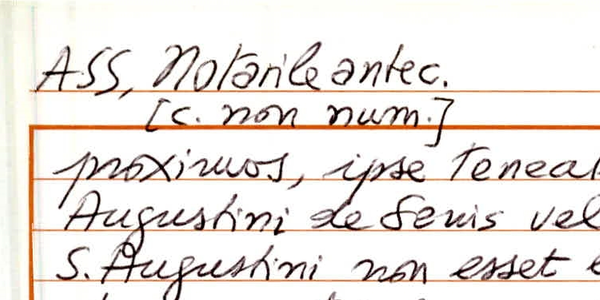 ASS, Notarile antec.
[c. non num.]
proximos, ipse teneas
Augustini de Senis vel
S. Augustini non esset e